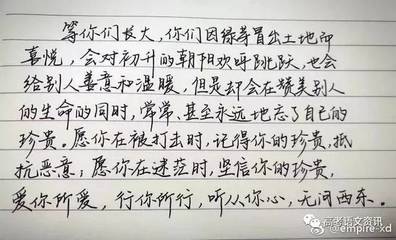 等你们长大,你们因绿芽冒出土地而
喜悦,会对初升的朝阳欢呼跳跃,也会
给别人善意和温暖,但是却会在赞美别人
的生命的同时,常常、甚至永远地忘了自己的
珍贵。愿你在被打击时,记得你的珍贵,抵
抗恶意;愿你在迷茫时,坚信你的珍贵,
爱你所爱,行你所行,听从你心,无问西东。
高考语文资讯
@empire-xd